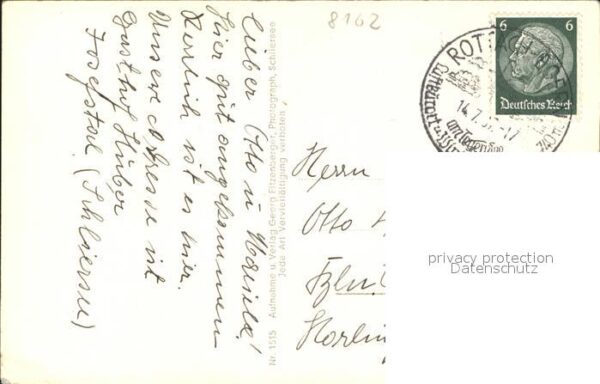 8162
Lieber Otto u Mariele!
Hier gut angekommen
Herrlich ist es hier.
Unsere Adresse ist
Gasthof Huber
Josefstal (Schliersee)
Nr. 1515 Aufnahme u. Verlag Georg Etzenberger, Photograph, Schliersee
Jede Art Vervielfältigung verboten
6 6
Deutsches Reich
ROTTACH-EGERN
14.7.
am Tegernsee
Herrn
Otto
privacy protection
Datenschutz